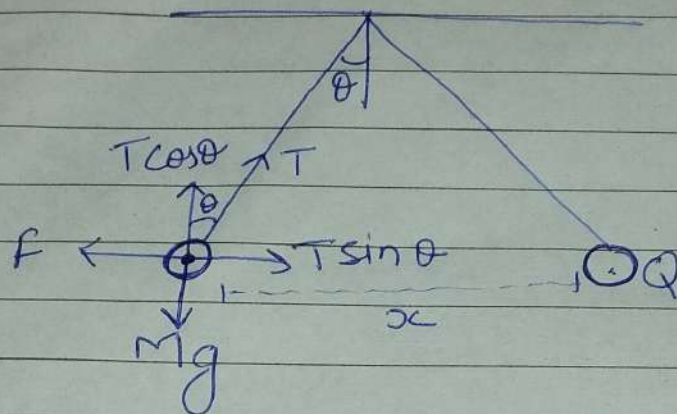 θ
T cosθ
T
θ
F
T sin θ
Q
x
Mg